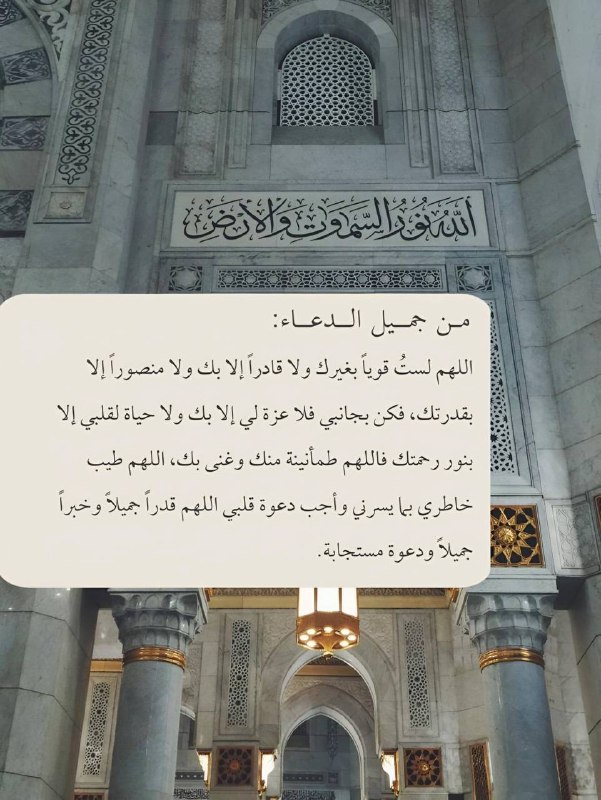 ٱللَّهُ نُورُ السَّمَاوَاتِ وَالْأَرْضِ
مـن جمـيل الـدعـاء:
اللهم لستُ قوياً بغيرك ولا قادراً إلا بك ولا منصوراً إلا
بقدرتك، فكن بجانبي فلا عزة لي إلا بك ولا حياة لقلبي إلا
بنور رحمتك فاللهم طمأنينة منك وغنى بك، اللهم طيب
خاطري بما يسرني وأجب دعوة قلبي اللهم قدراً جميلاً وخبراً
جميلاً ودعوة مستجابة.